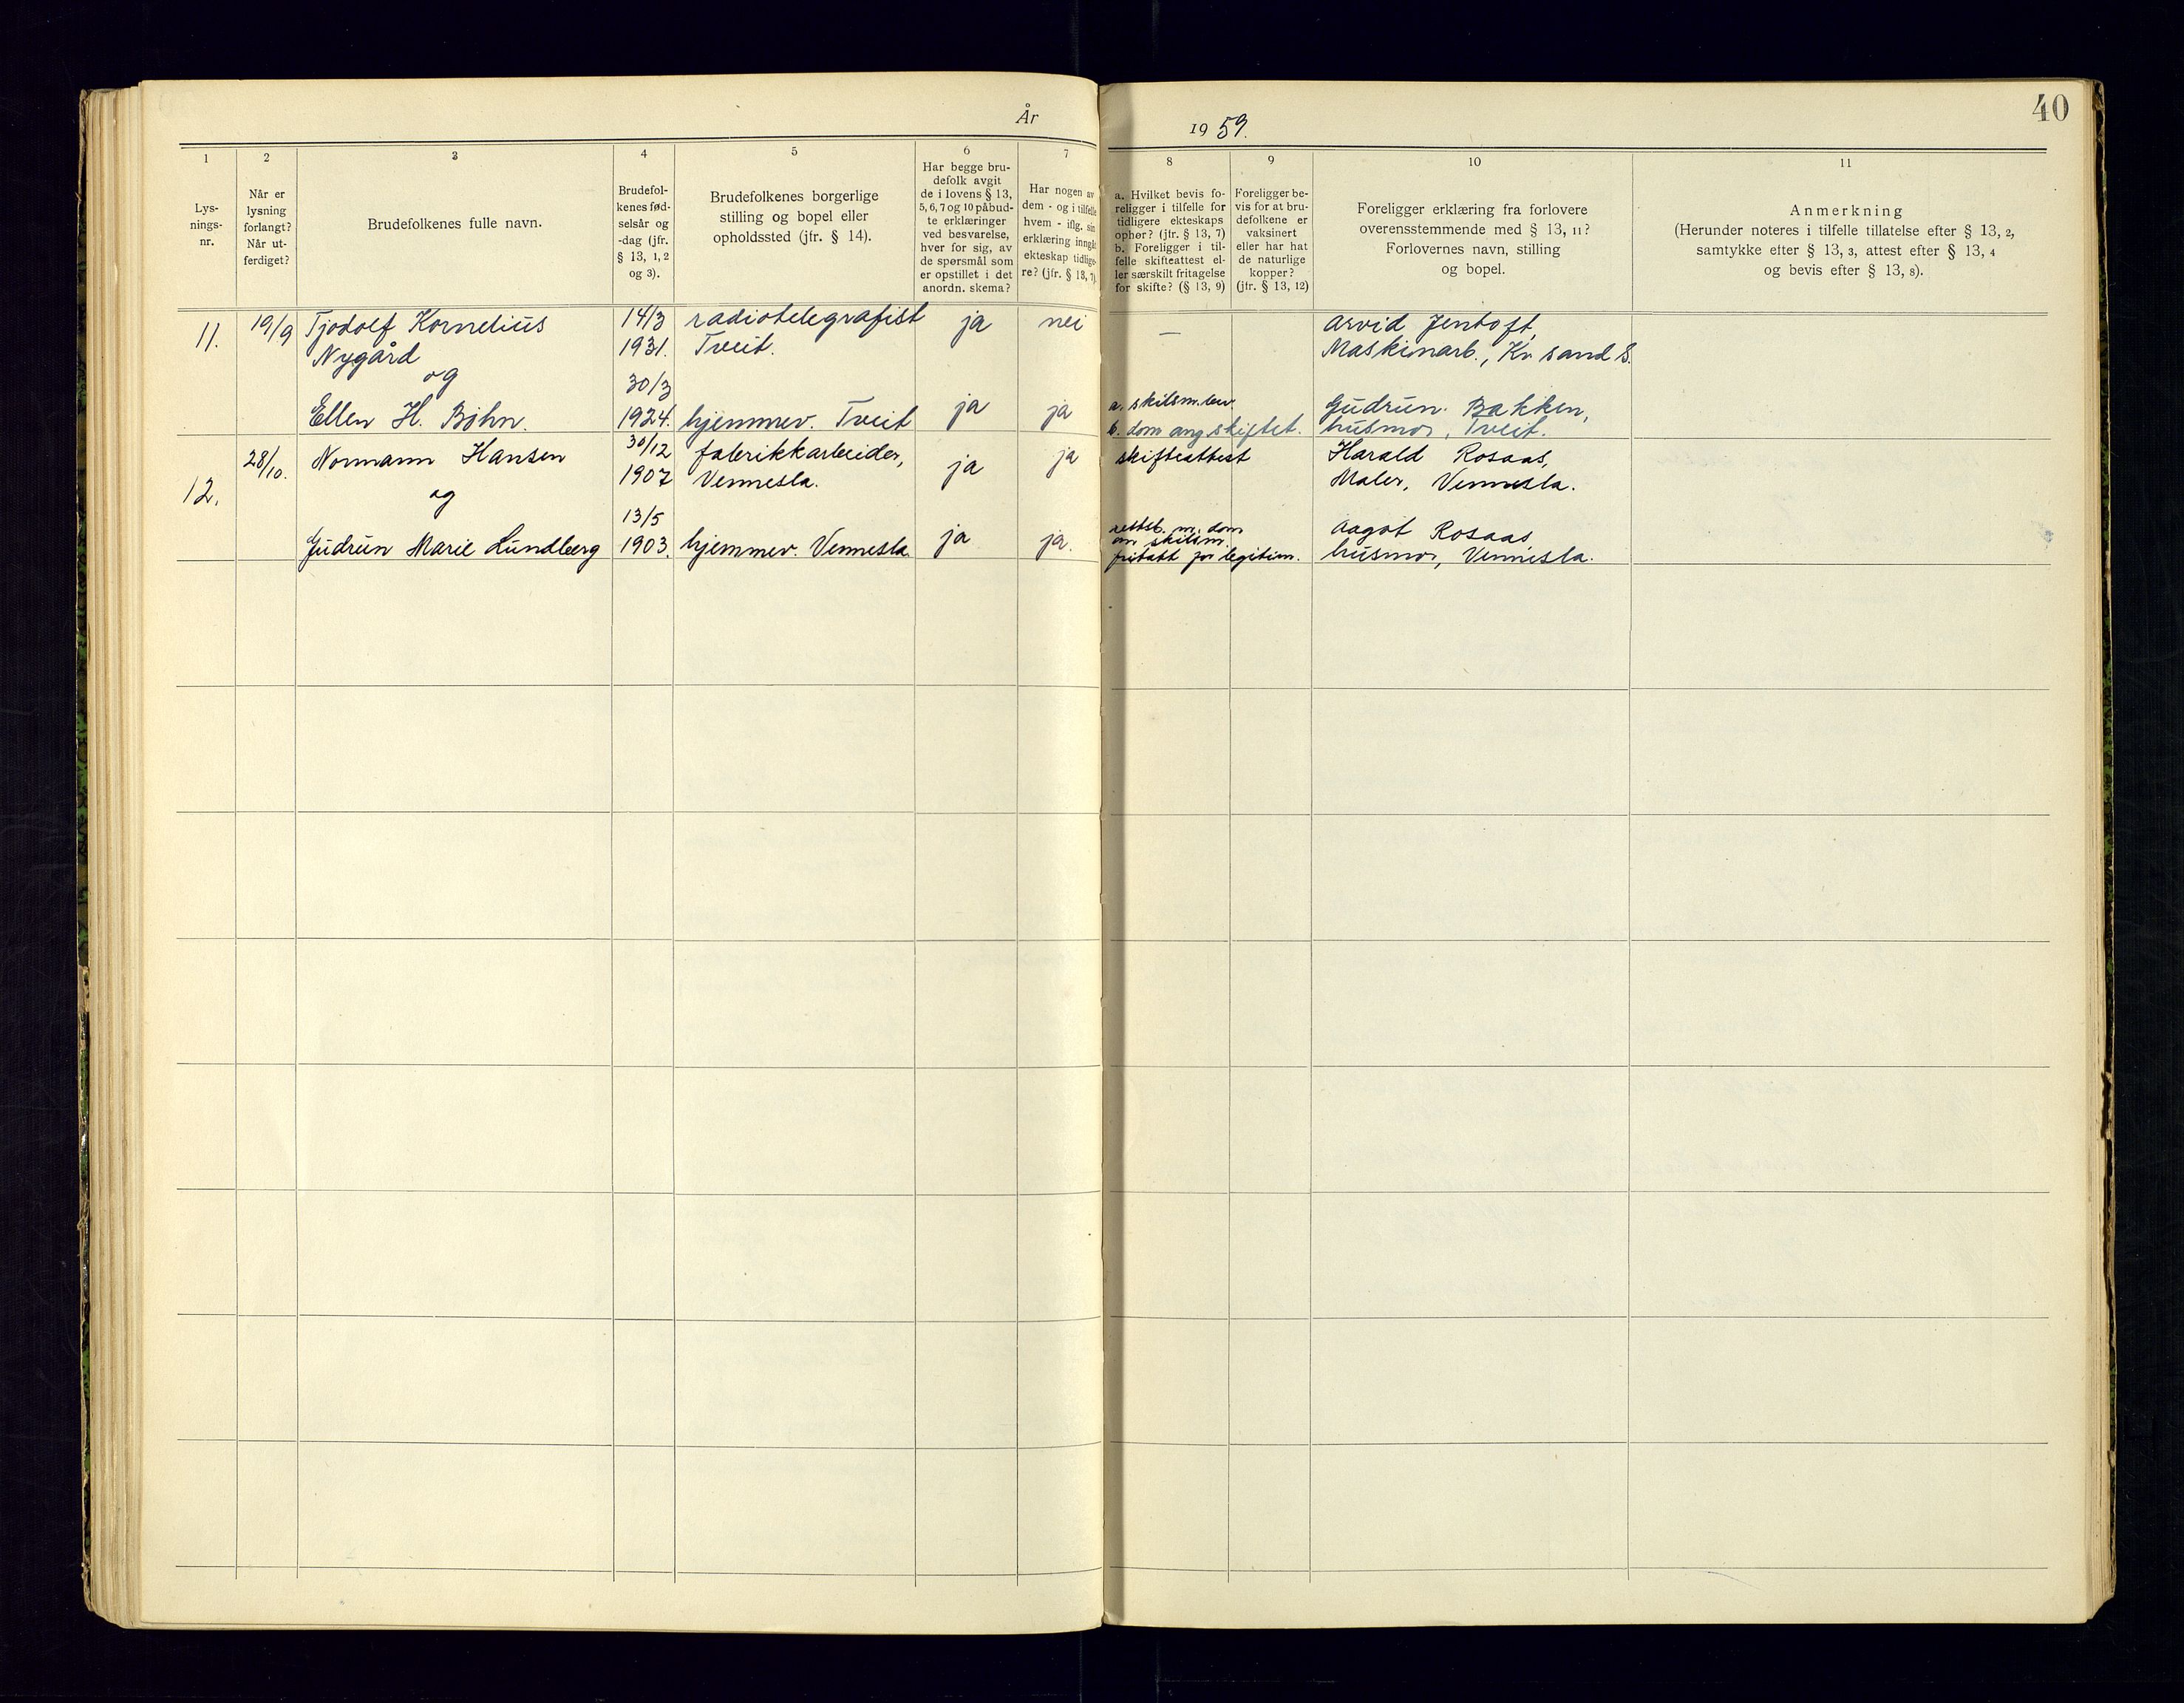 År 1959.
40
1
Lys-
nings-
nr.
2
Når er
lysning
forlangt?
Når ut-
ferdiget?
3
Brudefolkenes fulle navn.
4
Brudefol-
kenes fød-
selsår og
-dag (jfr.
§ 13, 1, 2
og 3).
5
Brudefolkenes borgerlige
stilling og bopel eller
opholdssted (jfr. § 14).
6
Har begge bru-
defolk avgit
de i lovens § 13,
5, 6, 7 og 10 påbud-
te erklæringer
ved besvarelse,
hver for sig, av
de spørsmål som
er opstillet i det
anordn. skema?
7
Har nogen av
dem - og i tilfelle
hvem - iflg. sin
erklæring inngått
ekteskap tidlige-
re? (jfr. § 13, 7)
8
a. Hvilket bevis fo-
religger i tilfelle for
tidligere ekteskaps
ophør? (jfr. § 13, 7)
b. Foreligger i til-
felle skifteattest el-
ler særskilt fritagelse
for skifte? (§ 13, 9)
9
Foreligger be-
vis for at bru-
defolkene er
vaksinert
eller har hat
de naturlige
kopper?
(jfr. § 13, 12)
10
Foreligger erklæring fra forlovere
overensstemmende med § 13, 11?
Forlovernes navn, stilling
og bopel.
11
Anmerkning
(Herunder noteres i tilfelle tillatelse efter § 13, 2,
samtykke efter § 13, 3, attest efter § 13, 4
og bevis efter § 13, 8).
11.
19/9
Tjodolf Kornelius
Nygård
og
Ellen H. Bøhn.
14/3
1931.
30/3
1924.
radiotelegrafist
Tveit.
hjemmev. Tveit
ja
ja
nei
ja
—
a. skilsm.bev.
b. dom ang skiftet.
Arvid Jentoft,
Maskinarb., Kr.sand S.
Gudrun Bakken,
husmor, Tveit.
12.
28/10.
Normann Hansen
og
Gudrun Marie Lundberg
30/12
1907
13/5
1903.
fabrikkarbeider,
Vennesla.
hjemmev. Vennesla.
ja
ja
ja
ja.
skifteattest
rettsb. m. dom
om skilsm.
fritatt for legitim.
Harald Rosaas,
Maler, Vennesla.
Aagot Rosaas
husmor, Vennesla.